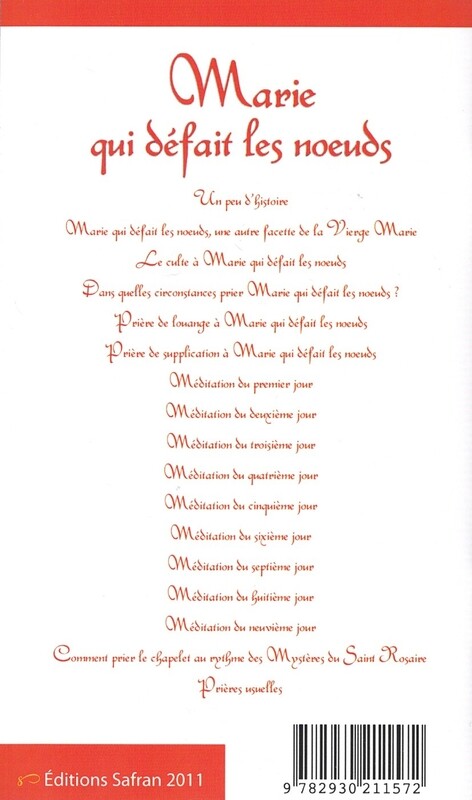 Marie
qui défait les noeuds
Un peu d'histoire
Marie qui défait les noeuds, une autre facette de la Vierge Marie
Le culte à Marie qui défait les noeuds
Dans quelles circonstances prier Marie qui défait les noeuds ?
Prière de louange à Marie qui défait les noeuds
Prière de supplication à Marie qui défait les noeuds
Méditation du premier jour
Méditation du deuxième jour
Méditation du troisième jour
Méditation du quatrième jour
Méditation du cinquième jour
Méditation du sixième jour
Méditation du septième jour
Méditation du huitième jour
Méditation du neuvième jour
Comment prier le chapelet au rythme des Mystères du Saint Rosaire
Prières usuelles
Éditions Safran 2011
9 782930 211572